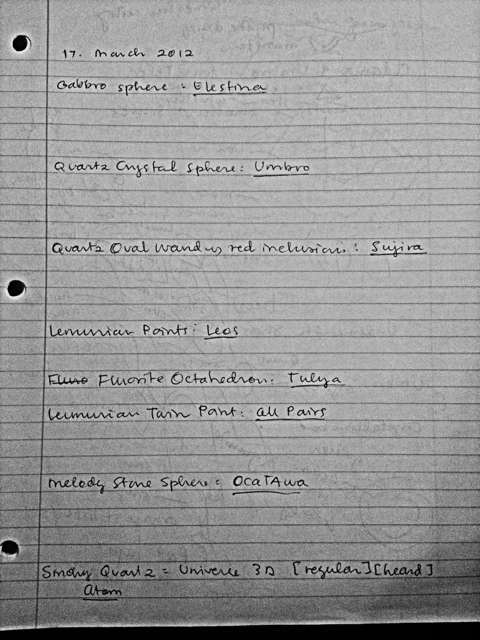 17. March 2012
Gabbro sphere : Elestina
Quartz Crystal Sphere: Umbro
Quartz Oval Wand w red inclusions: Sujira
Lemurian Points: Leos
Fluorite Octahedron: Tulya
Lemurian Twin Point: All Pairs
Melody Stone Sphere: OcaTAwa
Smoky Quartz = Universe 3D [regular][heard]
Atom